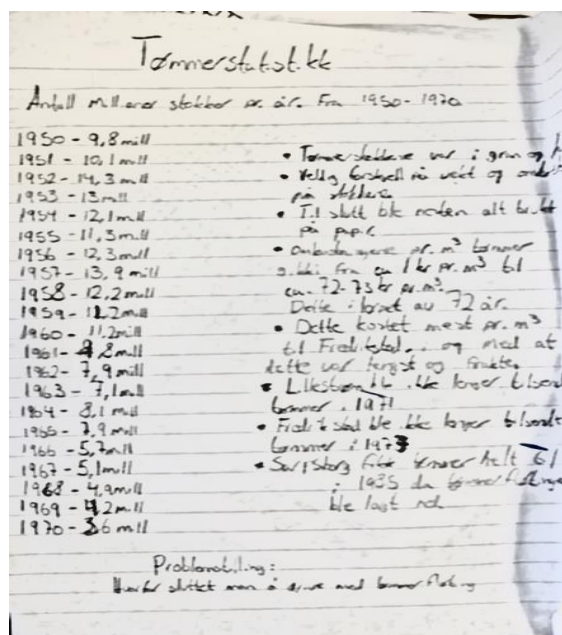 Tømmerstatistikk
Antall millioner stokker pr. år. Fra 1950-1970
1950 - 9,8 mill
1951 - 10,1 mill
1952 - 14,3 mill
1953 - 13 mill
1954 - 12,1 mill
1955 - 11,3 mill
1956 - 12,3 mill
1957 - 13,9 mill
1958 - 12,2 mill
1959 - 11,2 mill
1960 - 11,2 mill
1961 - 9,8 mill
1962 - 7,9 mill
1963 - 7,1 mill
1964 - 8,1 mill
1965 - 7,9 mill
1966 - 5,7 mill
1967 - 5,1 mill
1968 - 4,9 mill
1969 - 4,2 mill
1970 - 3,6 mill
• Tømmerstokkene var i gran og
• Veldig forskjell på vekt og
på stokkene
• Til slutt ble nesten alt brukt
på papir.
• pr. m³ tømmer
gikk fra ca 1 kr pr. m³ til
ca. 72-73 kr pr. m³.
Dette i løpet av 72 år.
• Dette kostet mest pr. m³
til Fredrikstad, i og med at
dette var lengst og frakte.
• Lillestrøm ble ikke lenger tilsendt
tømmer i 1971
• Fredrikstad ble ikke lenger tilsendt
tømmer i 1973
• Sarpsborg fikk tømmer helt til
i 1985 da
ble lagt ned.
Problemstilling:
Hvorfor sluttet man å drive med tømmerfløting